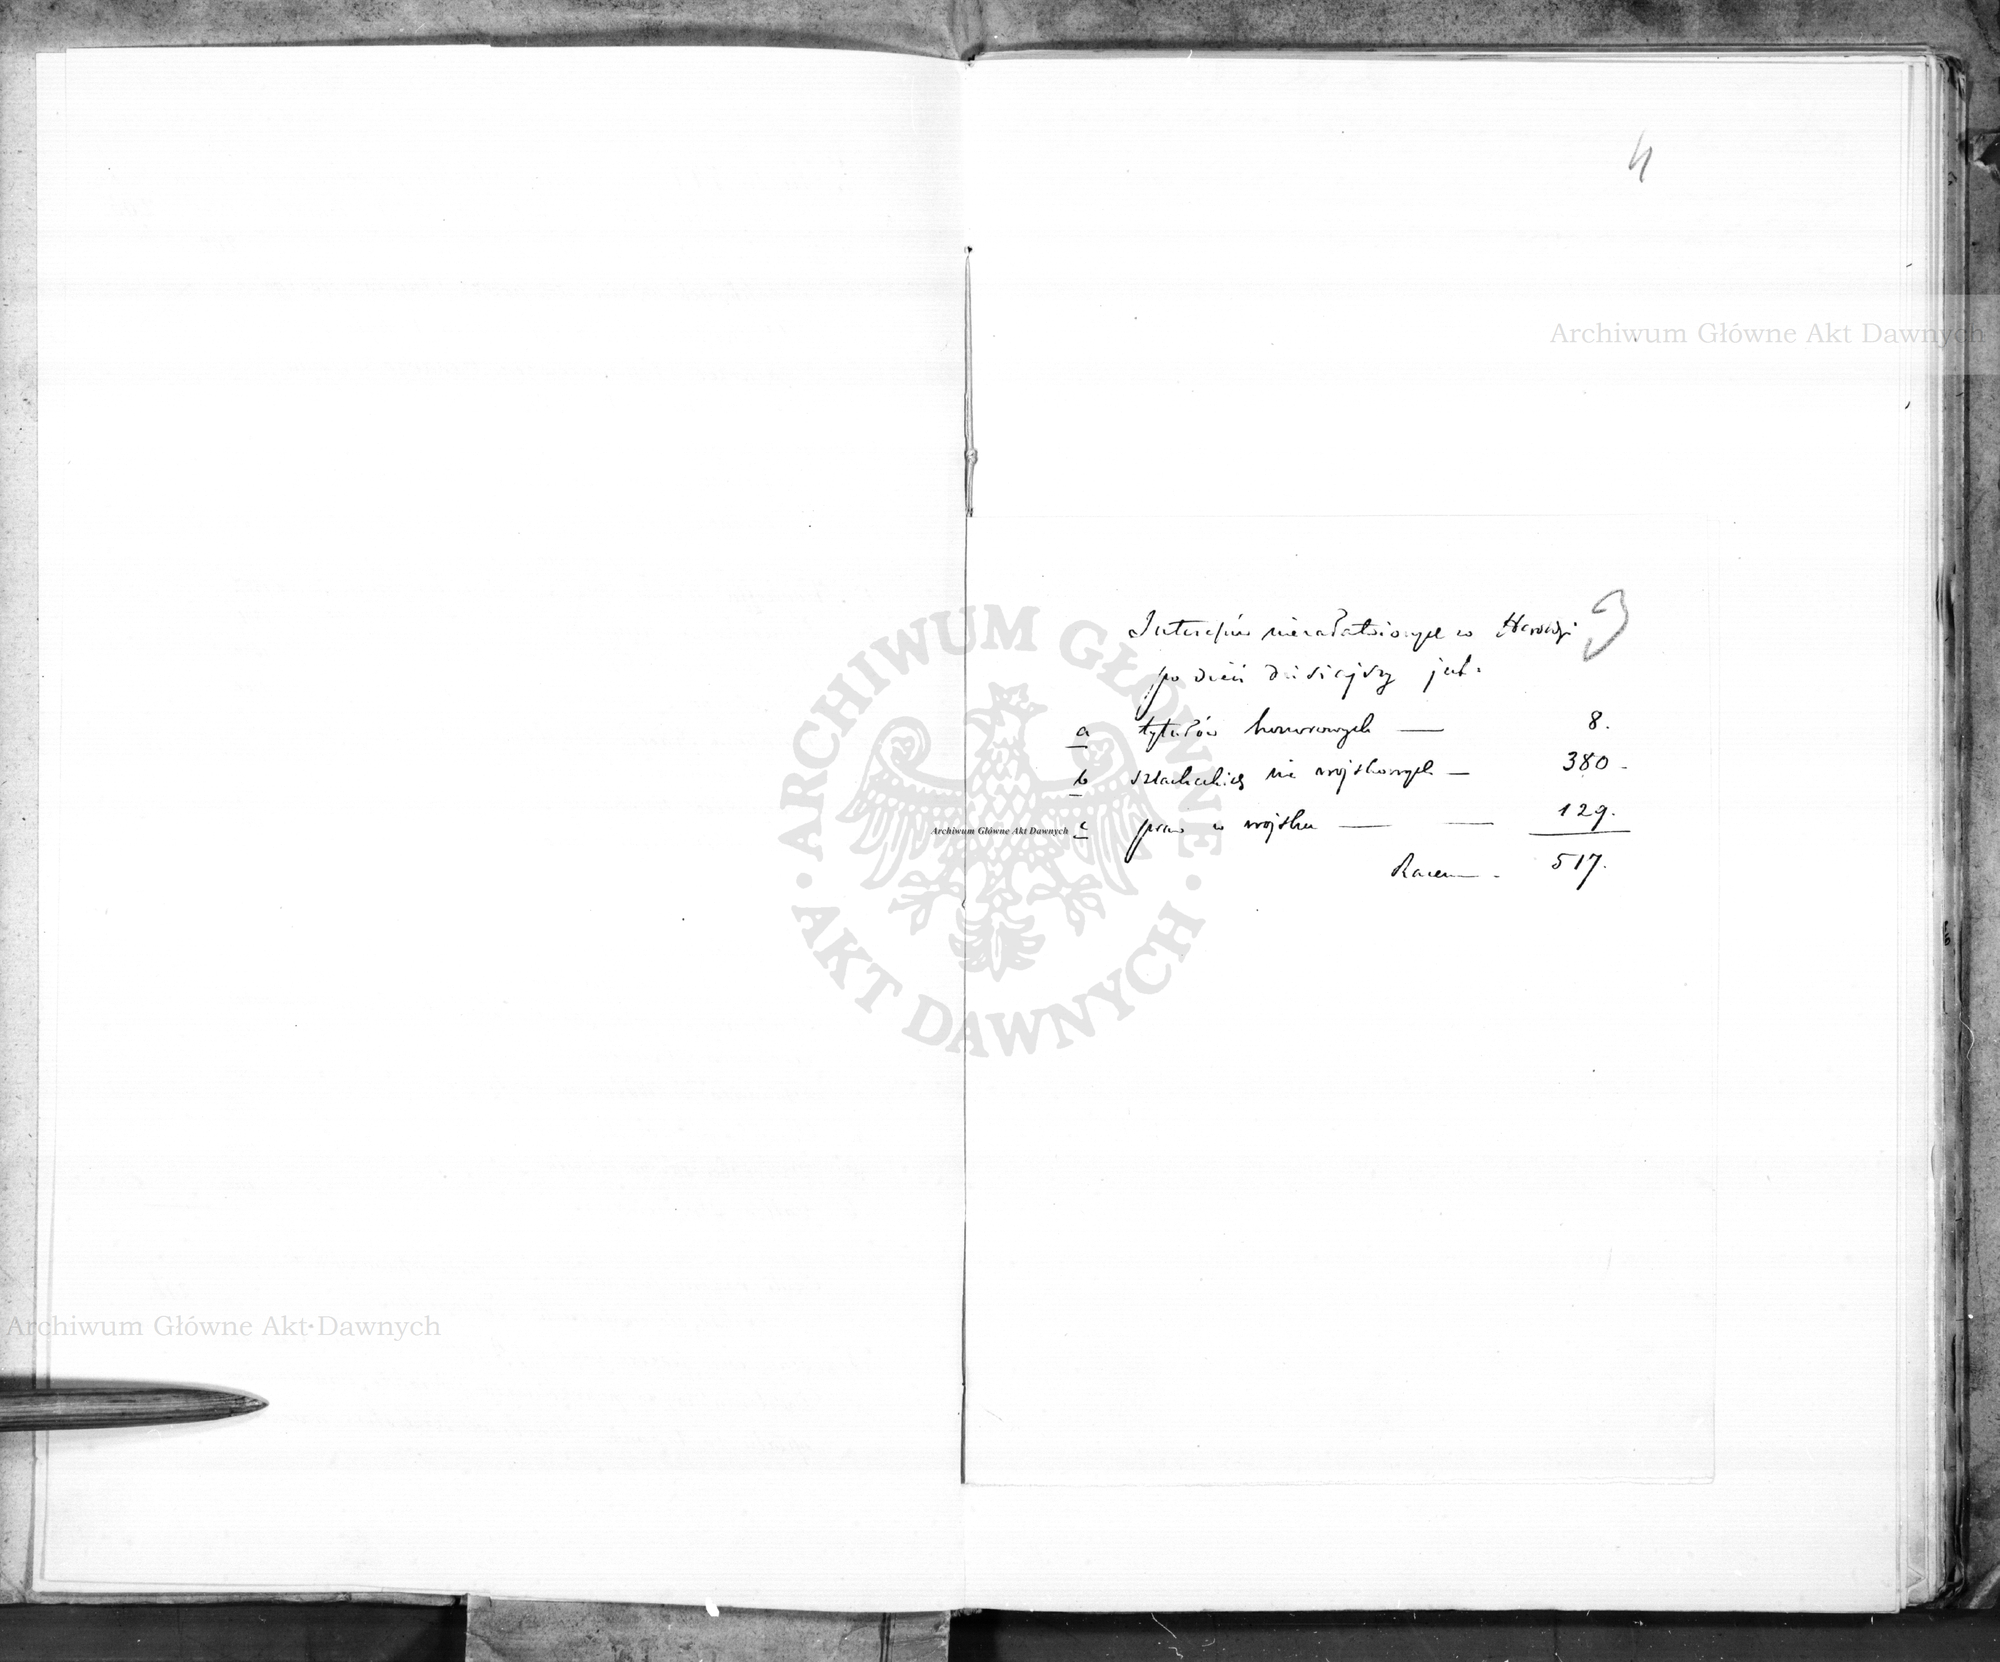 4
Archiwum Główne Akt Dawnych
Interesów niezałatwionych w Heroldyi
3
po dzień dzisiejszy jest.
a tytułów honorowych — 8.
b szlacheckich nie wojskowych — 380 -
c praw w wojsku — — 129.
Razem - 517.
ARCHIWUM GŁÓWNE AKT DAWNYCH
Archiwum Główne Akt Dawnych
Archiwum Główne Akt Dawnych